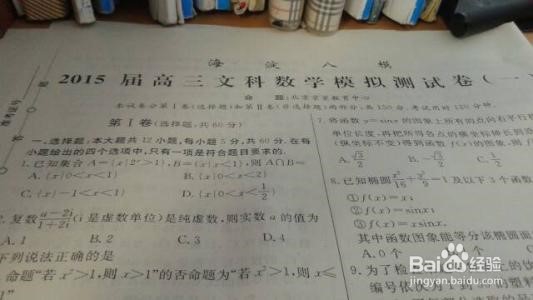 海淀八模
2015届高三文科数学模拟测试卷(一
本试卷分第Ⅰ卷(选择题)和第Ⅱ卷(非选择题)两部分,满150分,考试用时120分钟.
第Ⅰ卷(选择题,共60分)
一、选择题:本大题共12小题,每小题5分,共60分.在每
小题给出的四个选项中,只有一项是符合题目要求的.
1.已知集合A={x|2ˣ>1},B={x|x<1},则A∩B=
A.{x|0<x<1} B.{x|0<x<2}
C.{x|-1<x<1} D.{x|0<x<1/2}
2.复数(a-2i)/(1+2i)(i是虚数单位)是纯虚数,则实数a的值为
A.1 B.2 C.3 D.4
下列说法正确的是
命题“若x²>1,则x>1”的否命题为“若x²>1,则x≤
1”
7.将函数y=sinx的图象上所有的点向右平行移
单位长度,再把所得各点的横坐标伸长到
(纵坐标不变)得到函数f(x)的图象,则f
A.√3/2 B.-√3/2 C.1/2
8.已知椭圆x²/16+y²/9=1及以下3个函数
①f(x)=x;
②f(x)=sinx;
③f(x)=xsinx.
其中函数图象能等分该椭圆面
A.0个
9.为了检
编号依次为1到
Baidu经验
jingyan.baidu.com